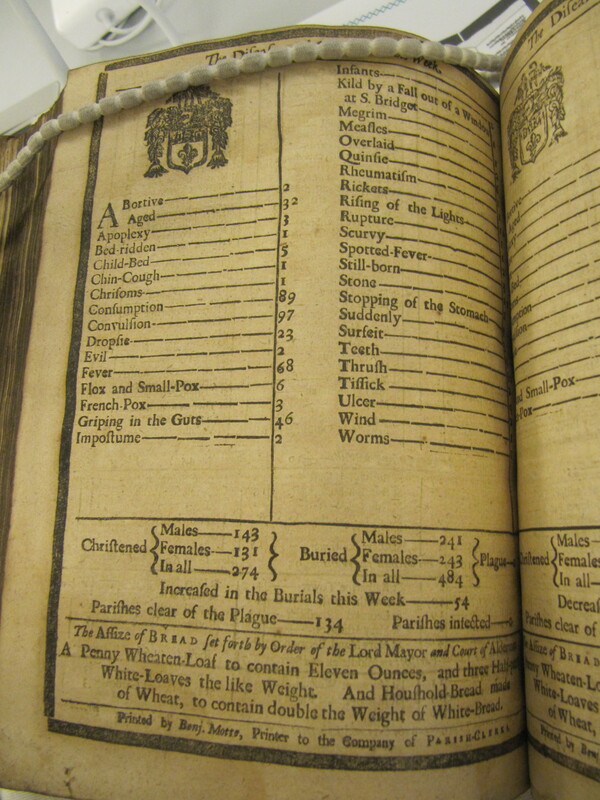 The Diſeaſes Week.
Abortive 2
Aged 32
Apoplexy 3
Bed-ridden 1
Child-Bed 5
Chin-Cough 1
Chriſoms 1
Conſumption 89
Convulſion 97
Dropſie 23
Evil 2
Fever 68
Flox and Small-Pox 6
French-Pox 3
Griping in the Guts 46
Impoſtume 2
Infants
Kild by a Fall out of a Window
at S. Bridget
Megrim
Meaſles
Overlaid
Quinſie
Rheumatiſm
Rickets
Riſing of the Lights
Rupture
Scurvy
Spotted-Fever
Still-born
Stone
Stopping of the Stomach
Suddenly
Surfeit
Teeth
Thruſh
Tiſſick
Ulcer
Wind
Worms
Chriſtened Males 143 Females 131 In all 274
Buried Males 241 Females 243 In all 484 Plague
Increaſed in the Burials this Week 54
Pariſhes clear of the Plague 134 Pariſhes infected 0
The Aſſize of BREAD ſet forth by Order of the Lord Mayor and Court of
A Penny Wheaten-Loaf to contain Eleven Ounces, and three
White-Loaves the like Weight. And Houſhold-Bread made
of Wheat, to contain double the Weight of White-Bread.
Printed by Benj. Motte, Printer to the Company of PARISH-CLERKS
The Diſeaſ
nd Small-Pox
-Pox
Males
Females
In all
Decreaſ
Pariſhes clear of